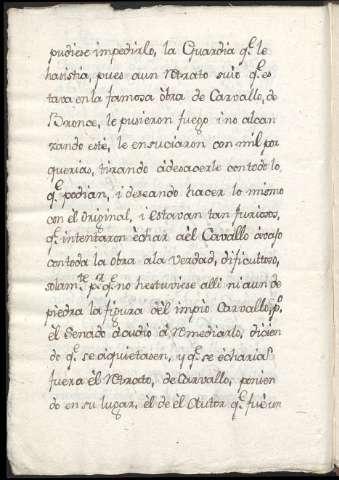 pudiese impedirlo, la Guardia q.e le
hasistia, pues aun Retrato suio q.e es
tava en la famosa òbra de Carvallo, de
Bronce, le pusieron fuego i no alcan
zando este, le ensuciaron con mil por
querias, tirando àdesacerle con todo lo,
q.e podian, i deseando hacer lo mismo
con el òriginal, i estavan tan furiosos,
q.e intentaron èchar àèl Cavallo àvajo
con toda la obra ala Verdad, dificultoso,
solam.te p.r q.e no hestuviese alli ni aun de
piedra la figura dèl impio Carvallo, p.o
èl Senado àcudiò à Remediarlo, dicien
do q.e se aquietasen, y q.e se echaria
fuera èl Retrato, de Carvallo, ponien
do en su lugar, èl de èl Autor q.e fuè un